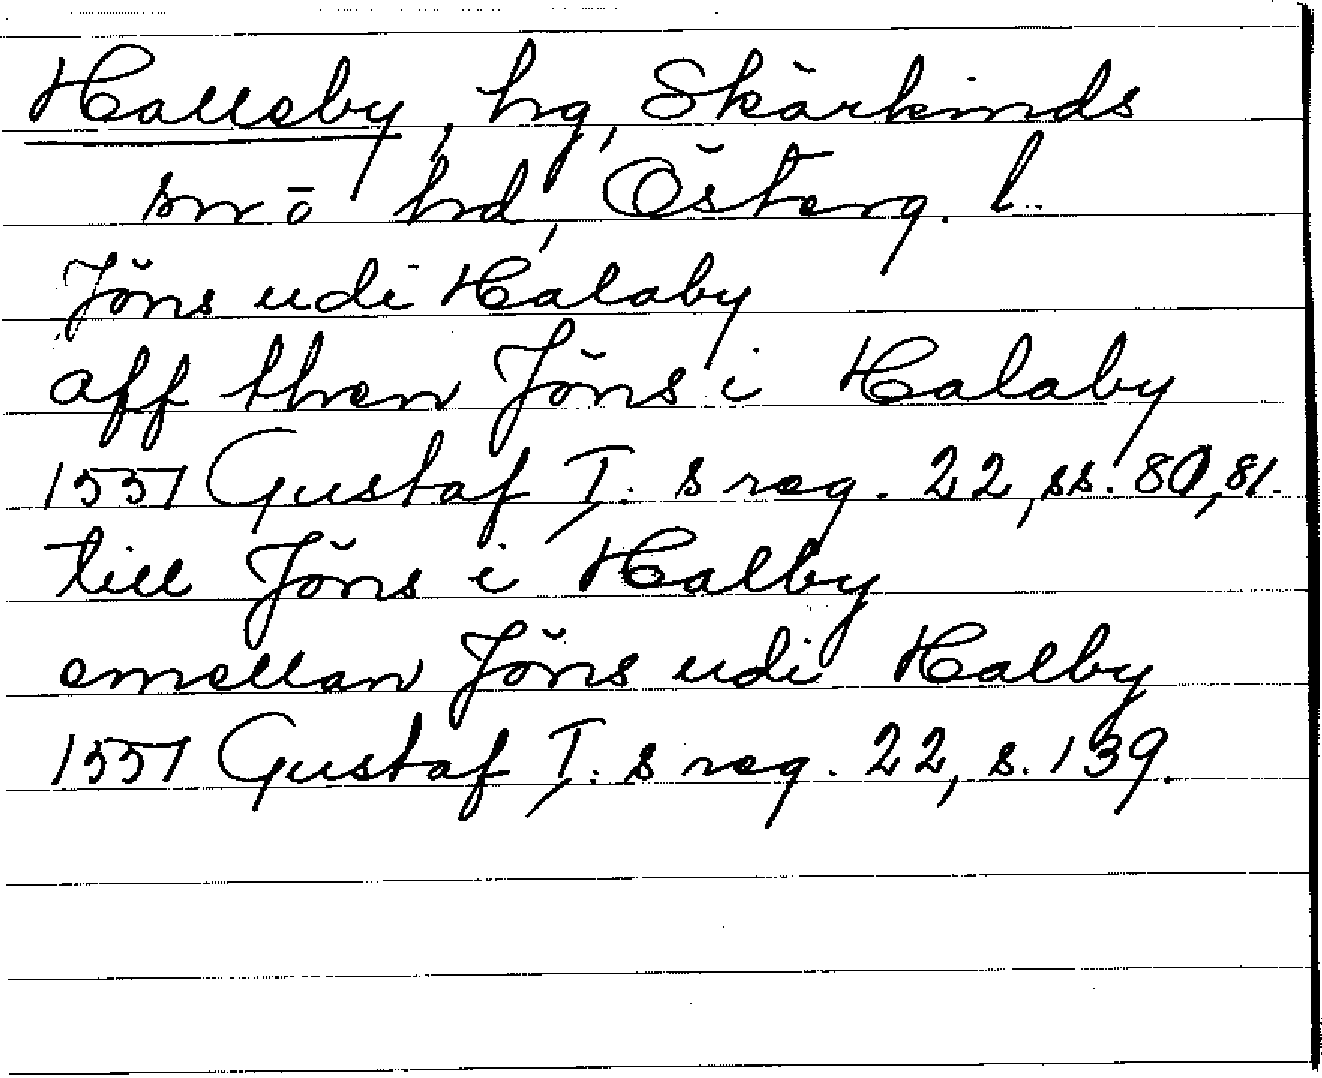 Hallaby, hg, Skärkinds
sn o hd, Österg. l.
Jöns udi Halaby
aff then Jöns i Halaby
1551 Gustaf I:s reg. 22, ss. 80, 81.
till Jöns i Halby
emellan Jöns udi Halby
1551 Gustaf I:s reg. 22, s. 139.